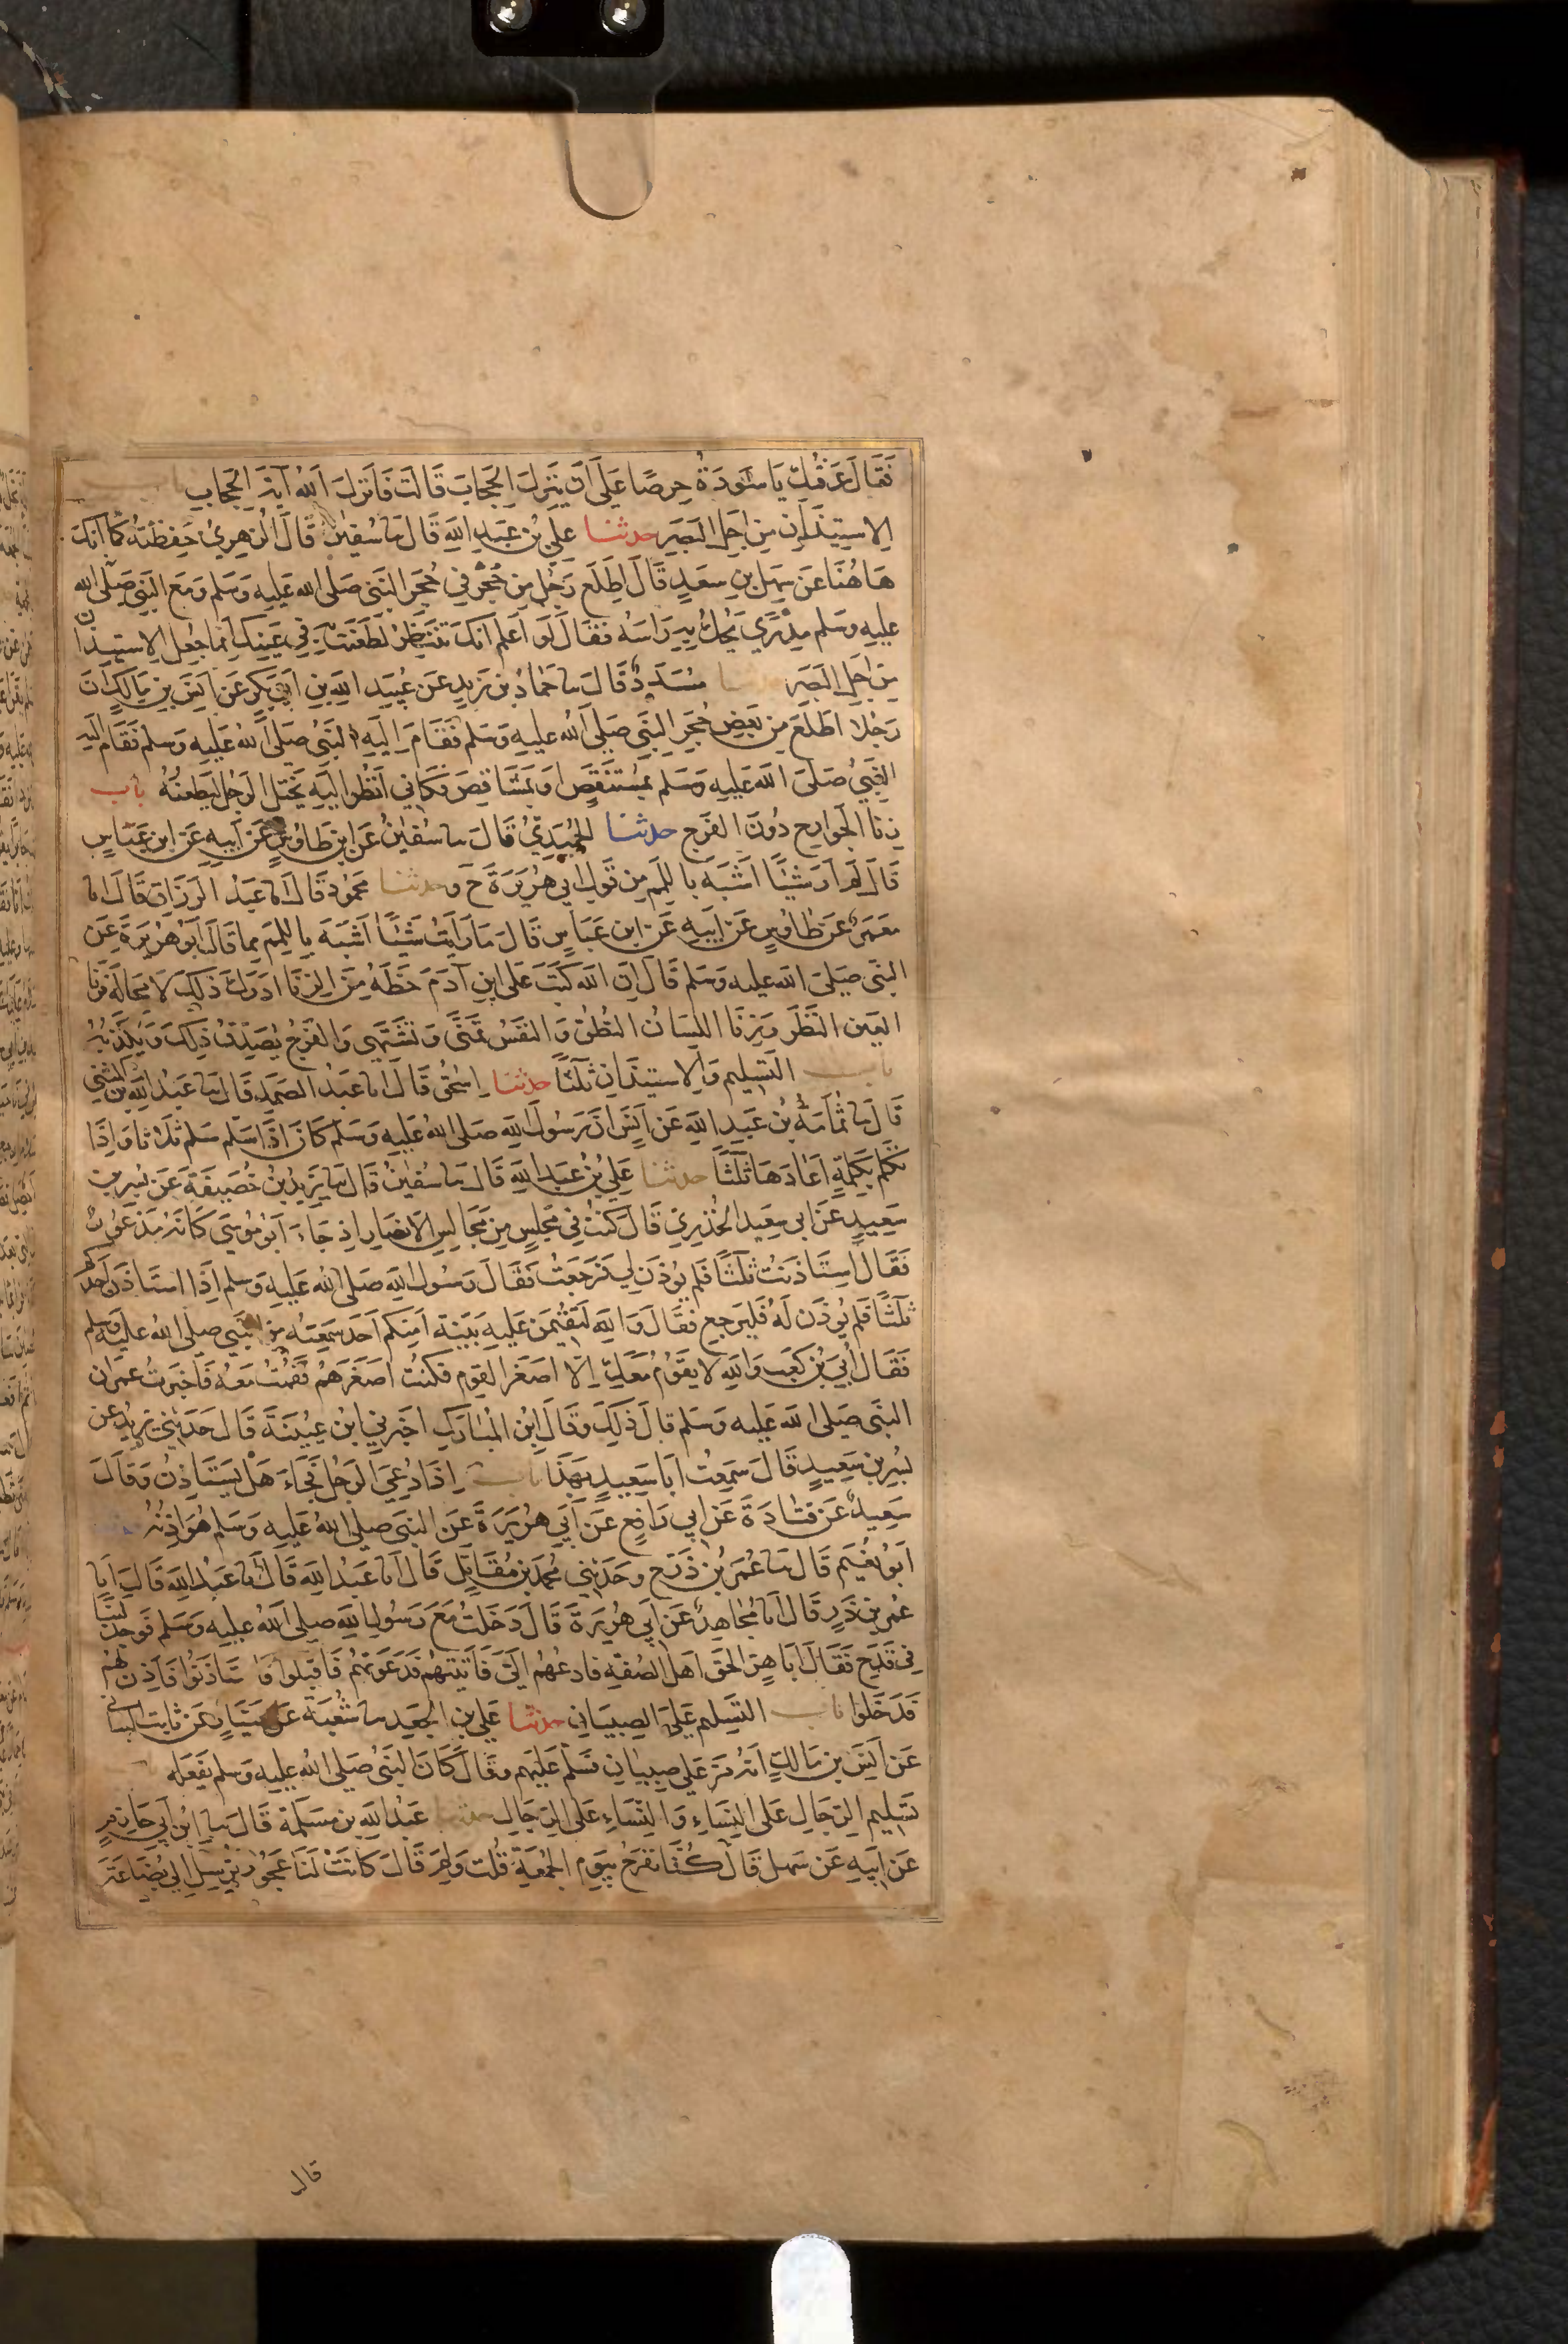 فَقَالَ عَرَفْتُكِ يَا سَوْدَةُ حِرصًا عَلَى اَنْ يَنْزِلَ الحِجَابَ قَالَتْ فَاَنْزَلَ اَللهُ آيَةَ الحِجَابِ باب
الاِستِيذَانِ مِنْ اَجْلِ البَصَرِ حدثنا علي بن عَبدِ اللهِ قَالَ سا سُفيٰنُ قَالَ الزُّهرِيُّ حَفِظتُهُ كَمَا اَنَّكَ
هَاهُنَا عَن سَهلِ بنِ سَعدٍ قَالَ اِطَّلَعَ رَجُلٌ مِن حُجرٍ فِي حُجَرِ النَّبي صَلى الله عَليهِ وَسَلم وَمَعَ النَّبي صَلى الله
عليهِ وسَلم مِدْرًي يَحُكُّ بِهِ رَاسَهُ فَقَالَ لَو اَعلَم اَنَّكَ تَنتَظِرُ لَطَعَنتُ بِهِ فِي عَينِكَ اِنما جُعِلَ الاِستيذان
مِن اَجلِ البَصَرِ حدثنا مُسَدَّدٌ قَالَ سا حَمَادُ بن زيدٍ عَن عُبَيدِ اللهِ بنِ اَبي بَكرٍ عَن اَنَسِ بنِ مَالِكٍ اَنَّ
رَجُلا اطَّلَعَ مِن بَعضِ حُجَرِ النَّبي صَلى اللهُ عليهِ وَسَلم فَقَامَ اِلَيهِ النَّبيُّ صَلى اللهُ عَليهِ وَسلم فَقَام اليهِ
النَّبيُّ صَلى الله عَليهِ وَسَلم بِمشقَصٍ اَو بِمَشَاقِصَ فَكَاَنّي اَنظُرُ اليهِ يَختِلُ الرَّجُلَ لِيَطعُنَهُ باب
زِنَا الجَوَارِحِ دُونَ الفَرجِ حدثنا الحُمَيدِيُّ قَالَ سا سُفيٰنُ عَن ابنِ طَاوُسٍ عَن اَبيهِ عَن ابنِ عَبَّاسٍ
قَالَ لَم اَرَ شَيئًا اَشبَهَ بِاللَّمَمِ مِن قَولِ ابي هُرَيرَةَ ح وحدثنا محمُود قَالَ انا عَبدُ الرَّزاقِ قَالَ انا
مَعمَرٌ عَن طَاوُسٍ عَن اَبيهِ عَن ابنِ عَبَّاسٍ قَالَ مَا رَاَيتُ شَيئًا اَشبَهَ بِاللَّمَمِ مما قَالَ ابو هُرَيرةَ عَن
النَّبي صَلى الله عليهِ وَسَلم قَالَ اِنَّ الله كَتَبَ عَلَى ابنِ آدَمَ حَظَّهُ مِنَ الزِّنَا اَدرَكَ ذٰلِكَ لَا مَحَالَةَ فَزِنَا
العَينِ النَّظَرُ وَزِنَا اللِّسَانِ النُّطقُ وَالنفَسُ تَمَنَّى وَتَشتَهِي وَالفَرجُ يُصَدِّقُ ذٰلِكَ وَيُكَذِّبُهُ
باب التَّسلِيمِ وَالاِستيذَانِ ثَلٰثًا حدثنا اِسحٰقُ قَالَ انا عَبدُ الصَّمَدِ قَالَ سا عَبدُ اللهِ بن المثنى
قَالَ سا ثُمَامَةُ بنُ عَبدِ اللهِ عَن اَنَسٍ اَنَّ رَسُولَ اللهِ صَلى اللهُ عَليهِ وَسَلم كَانَ اِذَا سَلم سَلم ثَلاثا وَاِذَا
تَكَلم بِكَلِمةٍ اَعَادَهَا ثَلٰثًا حدثنا عَلِيُّ بنُ عَبدِ اللهِ قَالَ سا سُفيٰنُ قَالَ سا يَزِيدُ بنُ خُصَيفَةَ عَن بُسرِ بنِ
سَعِيدٍ عَن ابي سَعِيد الخُدرِيِّ قَالَ كُنتُ فِي مَجلِسٍ مِن مَجَالِسِ الاَنصَارِ اِذ جَاءَ اَبُو مُوسَى كَاَنَّهُ مَذعُورٌ
فَقَالَ استَاذَنتُ ثَلٰثًا فَلم يُوذَن لي فَرَجَعتُ فَقَالَ رَسُولُ اللهِ صَلى اللهُ عَليهِ وَسلم اِذَا استَاذَنَ اَحَدُكم
ثَلٰثًا فَلم يُوذَن لَهُ فَليَرجِع فَقَالَ وَاللهِ لَتُقِيمَنَّ عَليهِ بَيِّنَة اَمِنكم اَحَد سَمِعَهُ مِن النَّبي صَلى الله عليهِ وسلم
فَقَالَ اُبَيُّ بنُ كَعبٍ وَاللهِ لا يَقُومُ مَعَكَ اِلَّا اَصغَرُ القَومِ فَكُنتُ اَصغَرَهُم فَقُمتُ مَعَهُ فَاَخبَرتُ عُمَرَ ان
النَّبي صَلى الله عَليهِ وسَلم قالَ ذٰلِكَ وقَالَ ابنُ المُبَارَكِ اخبَرني ابنُ عُيَينَةَ قَالَ حَدَّثَني يَزِيدُ عن
بُسرِ بنِ سَعِيدٍ قَالَ سَمِعتُ اَبَا سَعِيدٍ بِهَذَا باب اِذَا دُعِيَ الرَّجُلُ فَجَاءَ هَل يَستَاذِنُ وَقَالَ
سَعِيدٌ عَن قتَادَةَ عَن ابي رَافِعٍ عَن اَبي هُرَيرَةَ عَن النَّبي صلى اللهُ عَليهِ وَسَلم هُوَ اِذنُهُ
اَبُو نُعَيم قَالَ سا عُمَرُ بنُ ذَرٍّ ح وحَدثني مُحمَدُ بن مُقَاتِلٍ قَالَ انا عَبدُ اللهِ قَالَ انا عَبدُ اللهِ قَالَ انا
عُمر بنُ ذَرٍ قَالَ انا مُجَاهِدٌ عَن اَبي هُرَيرَةَ قَالَ دَخَلتُ مَعَ رَسُولِ اللهِ صَلى اللهُ عَليهِ وَسَلم فَوَجَدَ لَبَنًا
فِي قَدَحٍ فَقَالَ اَبَا هِرٍّ الحَق اَهلَ الصُّفَّةِ فَادعُهُم اِلَيَّ فَاَتَيتُهم فَدَعَوتُهُم فَاَقبَلُوا فَاستَاذَنُوا فَاَذِنَ لَهُم
فَدَخَلوا باب التَّسلِيم عَلَى الصِّبيَانِ حدثنا عَلي بن الجَعدِ سا شُعبَة عَن سَيَّارٍ عَن ثابت البناني
عَن اَنَسِ بنِ مَالكٍ اَنَّهُ مَرَّ عَلَى صِبيَانٍ فَسَلَّم عَلَيهم وقَالَ كَانَ النَّبيُّ صَلى اللهُ عَليهِ وَسلم يَفعَلُه
تَسلِيم الرِّجَالِ عَلَى النِّسَاءِ وَالنِّسَاءِ عَلَى الرِّجَالِ حدثنا عَبدُ اللهِ بن مَسلَمَة قَالَ سا ابنُ اَبي حَازِمٍ
عَن اَبِيهِ عَن سَهلٍ قَالَ كُنَّا نَفرَحُ بِيَومِ الجُمُعَةِ قُلتُ وَلِمَ قَالَ كَانَتْ لَنَا عَجُوزٌ تُرسِلُ اِلَى بُضَاعَةَ
قال